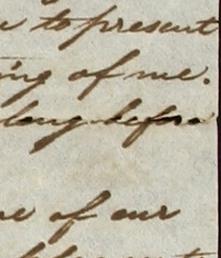 to present
ing of me.
long before
of our